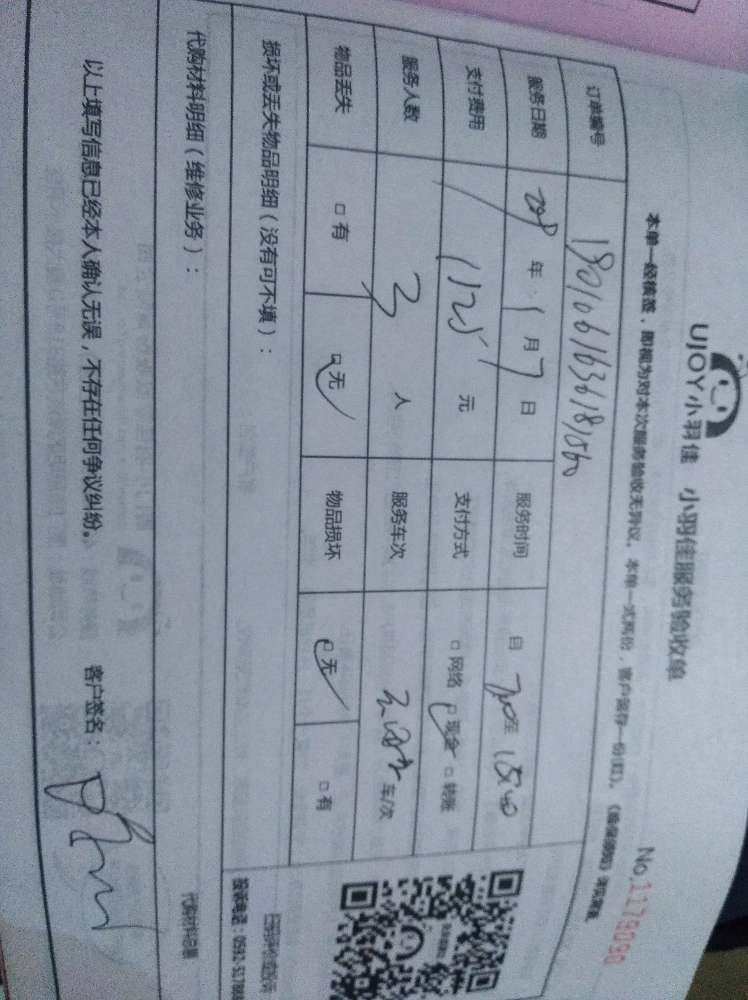 UJOY小羽佳 小羽佳服务验收单
No.1178090
本单一经核签，即视为对本次服务验收无异议。本单一式两份，客户留存一份(红)。
订单编号
服务日期 年 1 月 7 日 服务时间 自 至
支付费用 1125 元 支付方式 □网络 □现金 □转账
服务人数 3 人 服务车次 车/次
物品丢失 □有 □无 物品损坏 □无 □有
损坏或丢失物品明细（没有可不填）：
投诉电话：0592-
代购材料明细（维修业务）：
代购材料总额
以上填写信息已经本人确认无误，不存在任何争议纠纷。 客户签名：